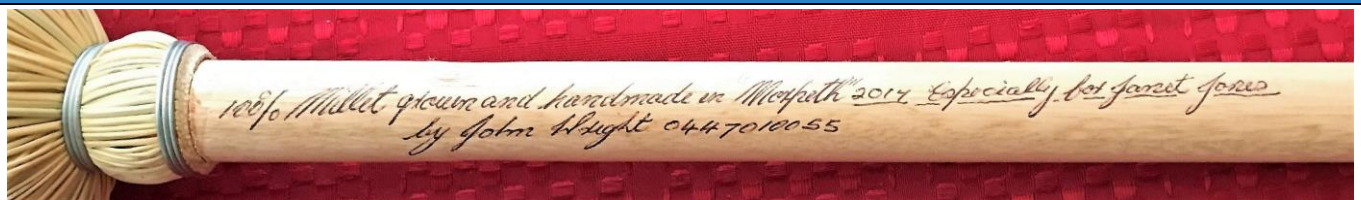 100% Millet grown and handmade in "Morpeth" 2017 Especially for Janet Jones
by John Wright 0447010055